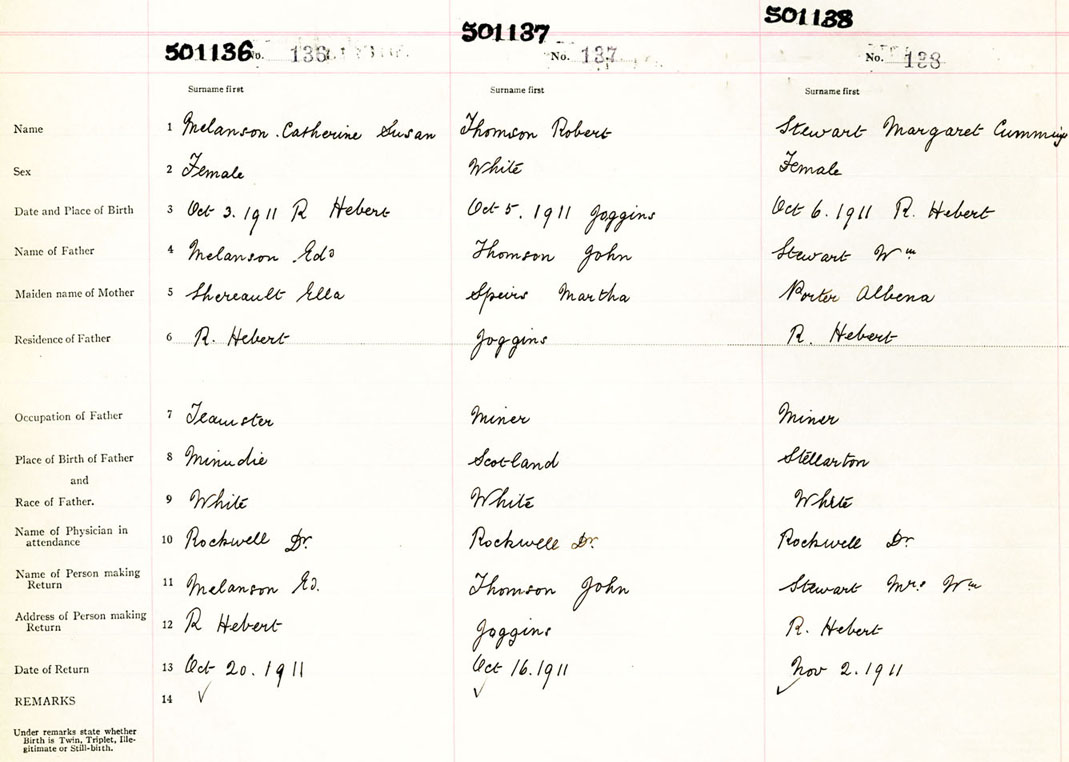 501136 501137 501138
No. 136 No. 137 No. 138
Surname first Surname first Surname first
Name 1 Melanson Catherine Susan Thomson Robert Stewart Margaret Cumming
Sex 2 Female White Female
Date and Place of Birth 3 Oct 3. 1911 R Hebert Oct 5. 1911 Joggins Oct 6. 1911 R. Hebert
Name of Father 4 Melanson Edd Thomson John Stewart Wm
Maiden name of Mother 5 Shereault Ella Speirs Martha Porter Albena
Residence of Father 6 R. Hebert Joggins R. Hebert
Occupation of Father 7 Teamster Miner Miner
Place of Birth of Father 8 Minudie Scotland Stellarton
and
Race of Father. 9 White White White
Name of Physician in
attendance 10 Rockwell Dr. Rockwell Dr. Rockwell Dr
Name of Person making
Return 11 Melanson Ed. Thomson John Stewart Mrs Wm
Address of Person making
Return 12 R Hebert Joggins R. Hebert
Date of Return 13 Oct 20. 1911 Oct 16. 1911 Nov 2. 1911
REMARKS 14
Under remarks state whether
Birth is Twin, Triplet, Ille-
gitimate or Still-birth.